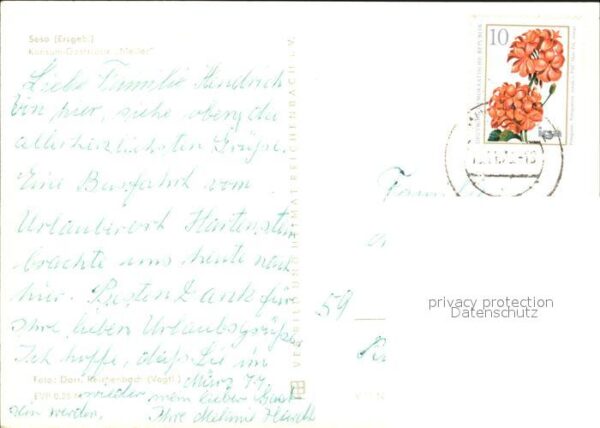 Sosa (Erzgeb.)
Konsum-Gaststätte "Meiler"
Liebe Familie Hendrich
Von hier, siehe oben, die
allerherzlichsten Grüße.
Eine Busfahrt vom
Urlauberort Hartenstein
brachte uns heute nach
hier. Besten Dank für
Ihre lieben Urlaubsgrüße
Ich hoffe, daß Sie im
März 77
wieder mein lieber Gast
sein werden. Ihre
Foto: Darr, Reichenbach (Vogtl.)
EVP 0,25
VERTRIEB UND HEIMAT REICHENBACH i. V.
10
DEUTSCHE DEMOKRATISCHE REPUBLIK
Familie
59
privacy protection
Datenschutz